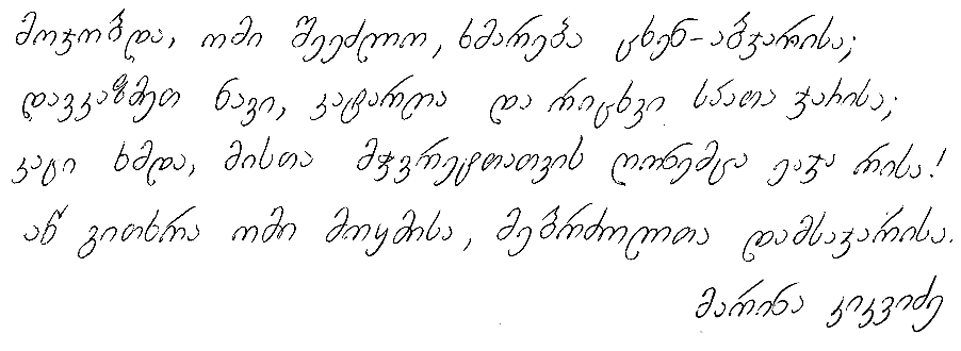 მოჯობდა, ომი შეეძლო, ხმარება ცხენ-აბჯარისა;
დავკაზმეთ ნავი, კატარღა და რიცხვი სპათა ჯარისა;
კაცი ხმდა, მისთა მჭვრეტთათვის ღონემცა ეაჯა რისა!
აწ გითხრა ომი მოყმისა, მებრძოლთა დამსაჯარისა.
მარინა კიკვიძე